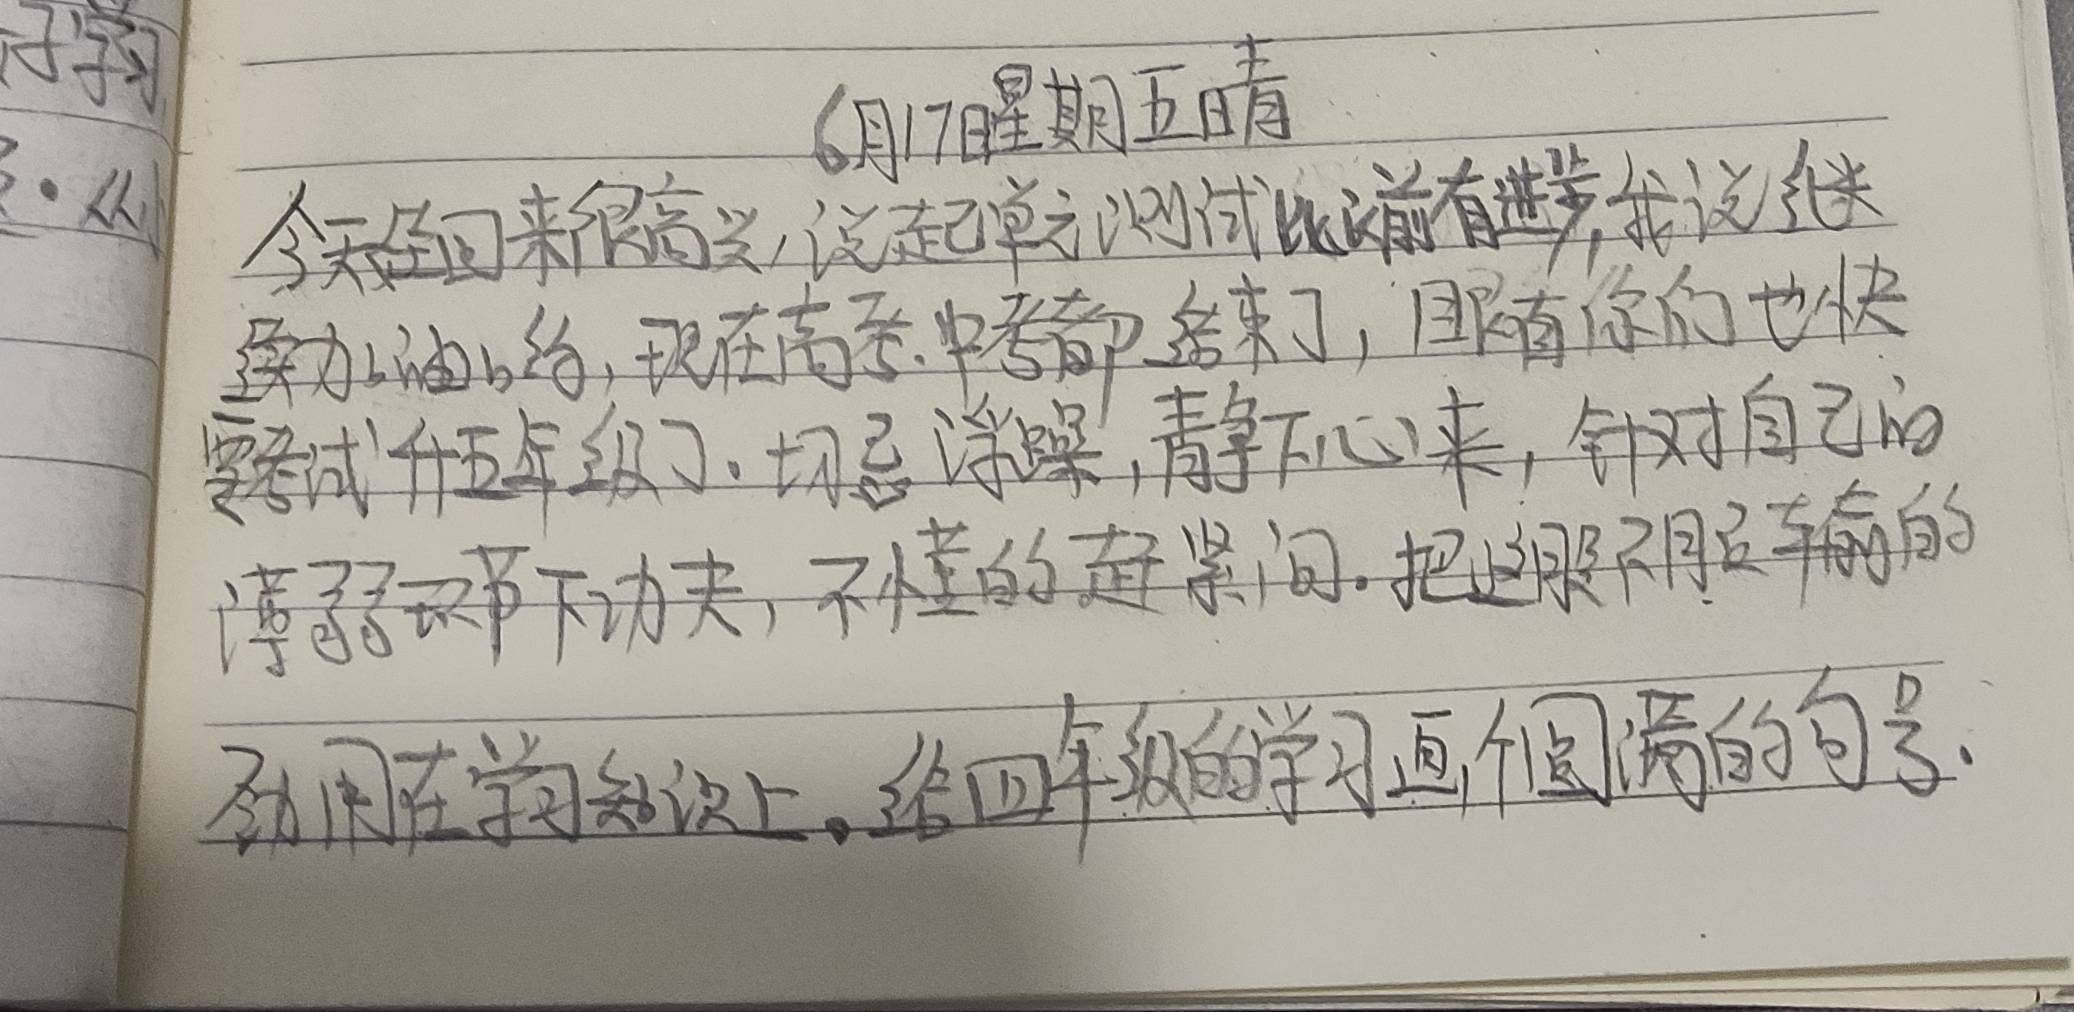 好学习
。从小
6月17日星期五晴
今天放学回来很高兴,说起单元测试比以前有进步,我说继
续加油哟,现在高考.中考都结束了,眼看你们也快
要考试升五年级了.切忌浮躁,静下心来,针对自己的
薄弱环节下功夫,不懂的赶紧问.把这股不用的
劲用在学习知识上。给四年级的学习画个圆满的句号.